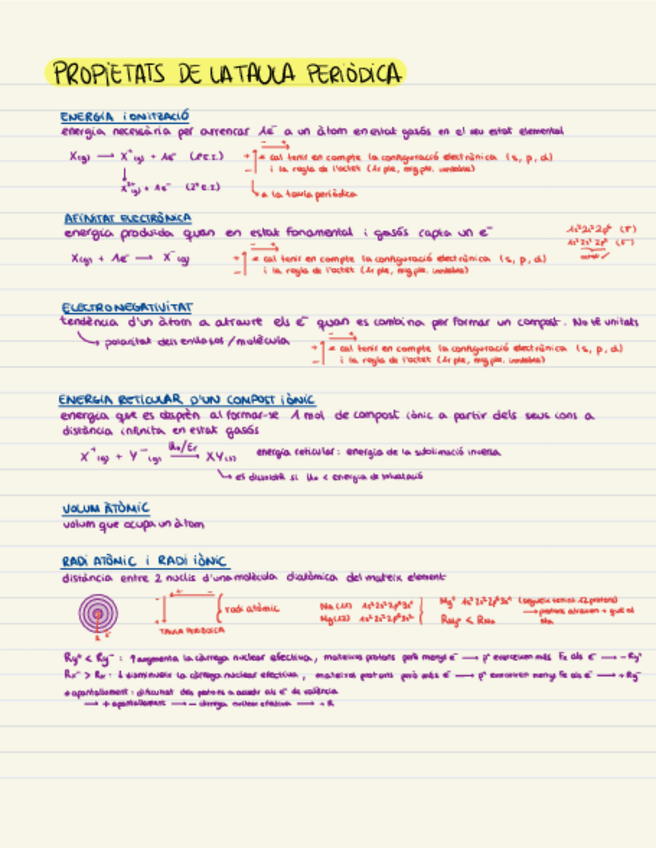 PROPIETATS DE LA TAULA PERIÒDICA
ENERGIA IONITZACIÓ
energia necessària per arrencar 1e⁻ a un àtom en estat gasós en el seu estat elemental
X(g) → X⁺(g) + 1e⁻ (1ª E.I.)
- → +
+ = cal tenir en compte la configuració electrònica (s, p, d)
- i la regla de l'octet (1r ple, mig ple, variables)
X²⁺(g) + 1e⁻ (2ª E.I.)
a la taula periòdica
AFINITAT ELECTRÒNICA
energia produida quan en estat fonamental i gasós capta un e⁻
1s²2s²2p⁵ (F)
1s²2s²2p⁶ (F⁻)
X(g) + 1e⁻ → X⁻(g)
- → +
+ = cal tenir en compte la configuració electrònica (s, p, d)
- i la regla de l'octet (1r ple, mig ple, variables)
ELECTRONEGATIVITAT
tendència d'un àtom a atraure els e⁻ quan es combina per formar un compost. No té unitats
polaritat dels enllaços/molècula
- → +
+ = cal tenir en compte la configuració electrònica (s, p, d)
- i la regla de l'octet (1r ple, mig ple, variables)
ENERGIA RETICULAR D'UN COMPOST IÒNIC
energia que es desprèn al formar-se 1 mol de compost iònic a partir dels seus ions a
distància infinita en estat gasós
X⁺(g) + Y⁻(g) → XY(s) energia reticular: energia de la sublimació inversa
U₀/Er
es dissoldrà si U₀ < energia de solvatació
VOLUM ATÒMIC
volum que ocupa un àtom
RADI ATÒMIC I RADI IÒNIC
distància entre 2 nuclis d'una molècula diatòmica del mateix element
radi atòmic
TAULA PERIÒDICA
Na (11) 1s²2s²2p⁶3s¹
Mg (12) 1s²2s²2p⁶3s²
Mg⁺ 1s²2s²2p⁶3s¹ (segueix tenint 12 protons)
protons atrauen + que el
Na
RMg⁺ < RNa
Ry⁺ < Ry : ↑augmenta la càrrega nuclear efectiva, mateixos protons però menys e⁻ → p⁺ exerceixen més Fe als e⁻ → -Ry⁺
Rx⁻ > Rx : ↓disminueix la càrrega nuclear efectiva, mateixos protons però més e⁻ → p⁺ exerceixen menys Fe als e⁻ → +Ry⁻
apantallament: dificultat dels protons a accedir als e⁻ de valència
→ + apantallament → - càrrega nuclear efectiva → + R